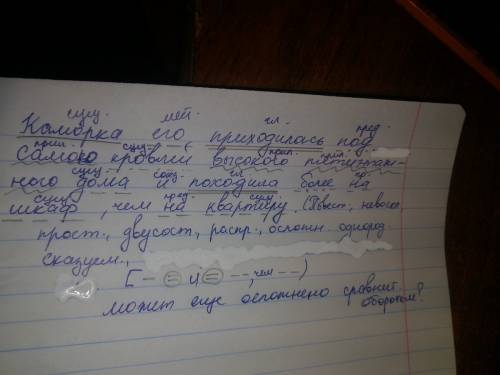 сущ. мест. гл. пред.
Каморка его приходилась под
прил. сущ. прил. прил.
самою кровлей высокого пятиэтаж-
сущ. союз гл. пр.
ного дома и походила более на
сущ. пред. сущ.
шкаф, чем на квартиру. (Повест., невоскл.
прост., двусост., распр., ослож. однород.
сказуем.,
[— = и = --, чем --)
может еще осложнено сравнит
оборотом?